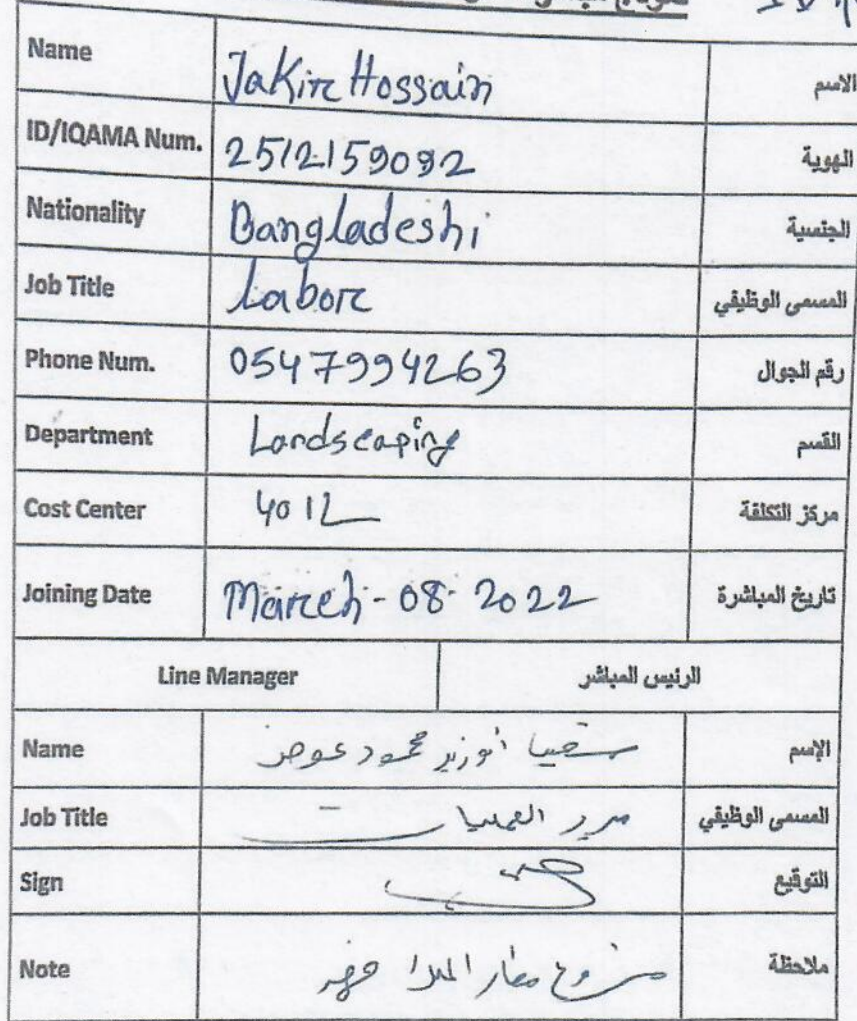 Name Jakir Hossain الاسم
ID/IQAMA Num. 2512159092 الهوية
Nationality Bangladeshi الجنسية
Job Title Labor المسمى الوظيفي
Phone Num. 0547994263 رقم الجوال
Department Landscaping القسم
Cost Center 4012 مركز التكلفة
Joining Date March-08-2022 تاريخ المباشرة
Line Manager الرئيس المباشر
Name أبوزيد محمود عوض الإسم
Job Title مدير العمليات المسمى الوظيفي
Sign التوقيع
Note مشروع مطار الملك ملاحظة